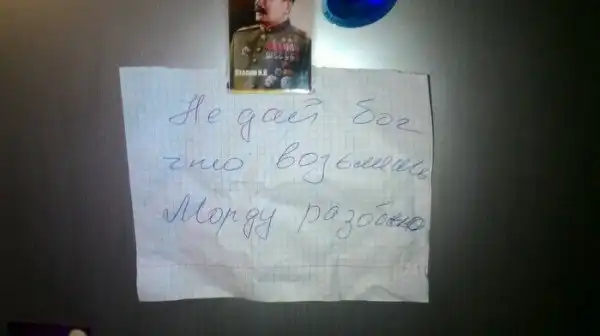 СТАЛИН И.В.
Не дай бог
что возьмешь
Морду разобью